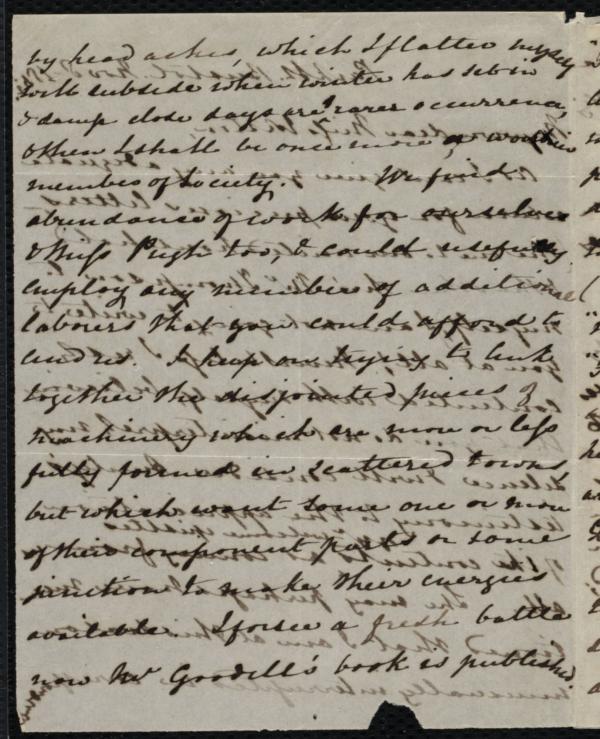 by head aches, which I flatter myself
will subside when winter has set in
& damp close days are rarer occurrence,
& then I shall be once more a worthier
member of Society. We find
abundance of work for ourselves
& Miss Pugh too, & could usefully
employ any members of additional
labourers that you could afford to
send us. I keep on trying to link
together the disjointed pieces of
machinery which are more or less
fully formed in scattered towns,
but which want some one or more
of their component parts or some
junction to make their energies
available. I forsee a fresh battle
now Mr Goodell's book is published